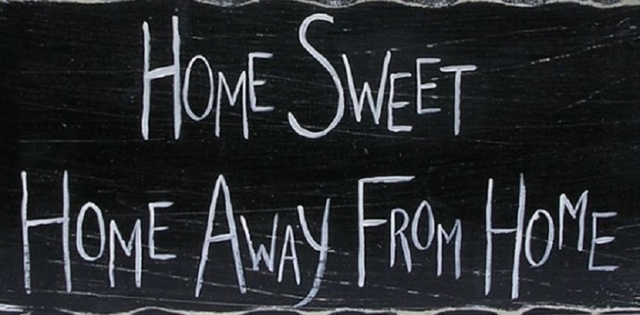 Home Sweet
Home Away From Home